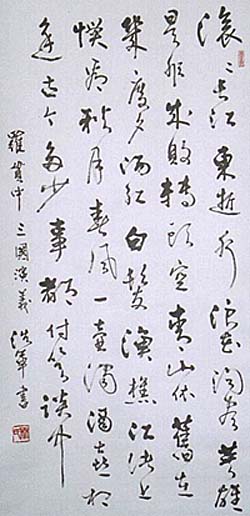 滾〻長江東逝水浪花淘盡英雄
是非成敗轉頭空青山依舊在
幾度夕陽紅白髮漁樵江渚上
慣看秋月春風一壺濁酒喜相
逢古今多少事都付笑談中
羅貫中三國演義 書